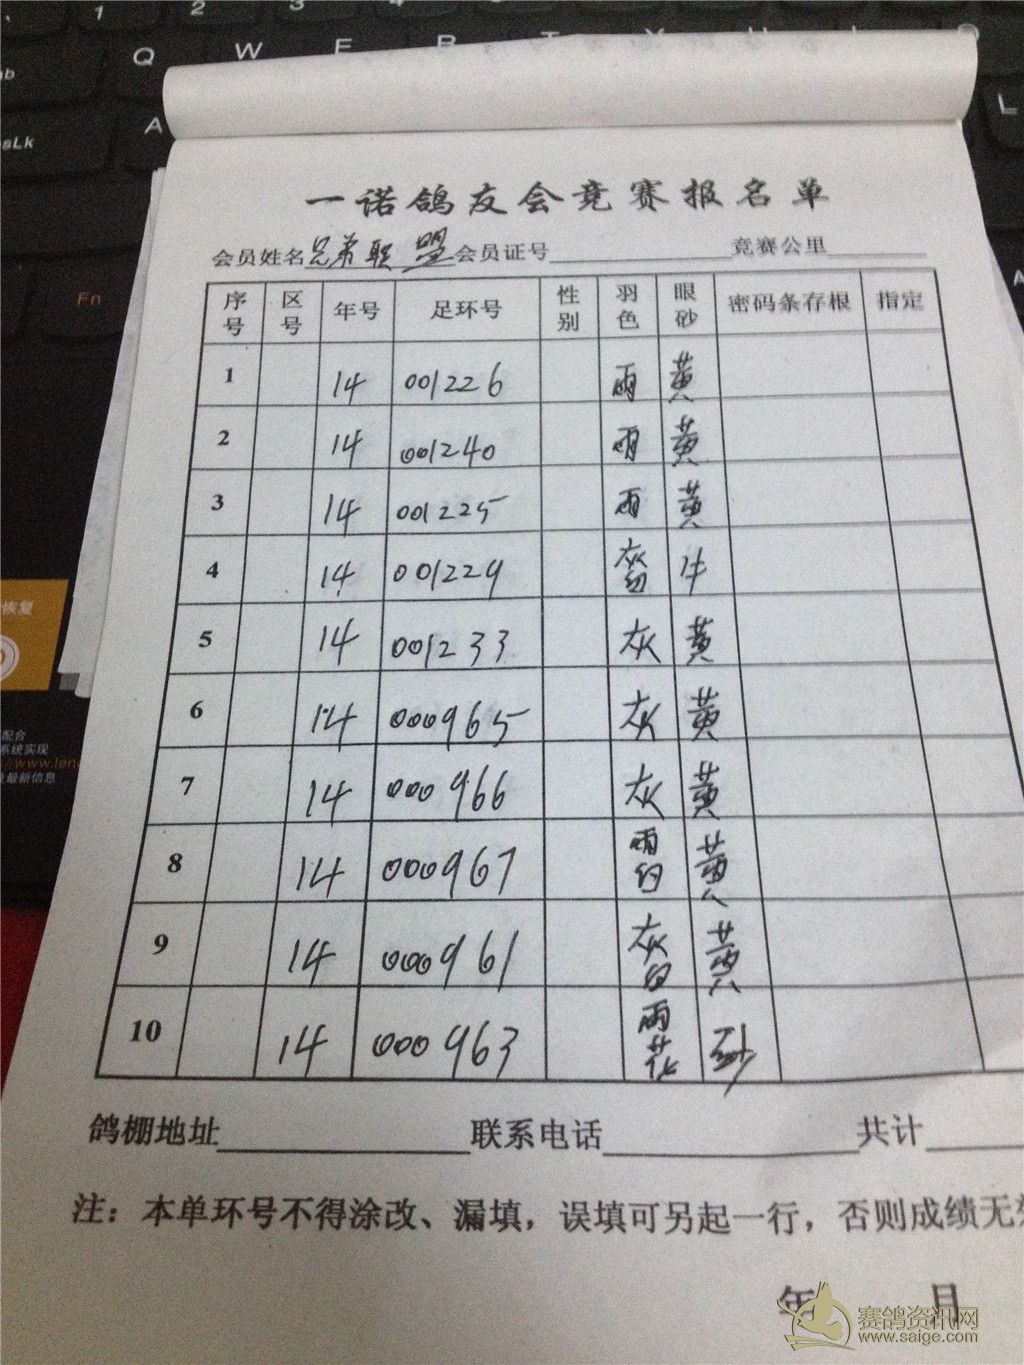 1 2 3 4
Q W E R T Y U I O
A
L
Fn
一诺鸽友会竞赛报名单
会员姓名兄弟联盟会员证号 竞赛公里
序号 区号 年号 足环号 性别 羽色 眼砂 密码条存根 指定
1 14 001226 雨 黄
2 14 001240 雨 黄
3 14 001225 雨 黄
4 14 001229 灰白 牛
5 14 001233 灰 黄
6 14 000965 灰 黄
7 14 000966 灰 黄
8 14 000967 雨白 黄
9 14 000961 灰白 黄
10 14 000963 雨花 砂
鸽棚地址 联系电话 共计
注：本单环号不得涂改、漏填，误填可另起一行，否则成绩无
年 月
恢复
配合
系统实现
最新信息
赛鸽资讯网
www.saige.com